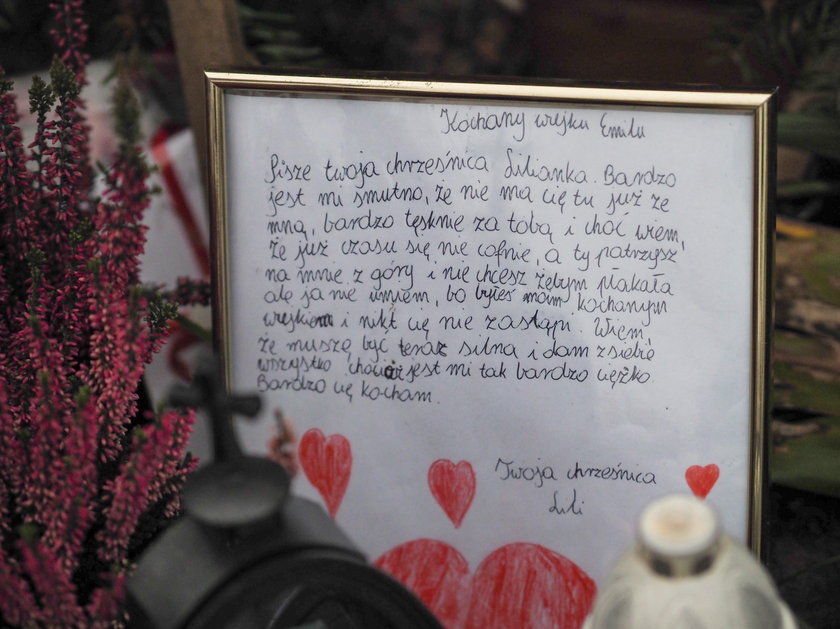 Kochany wujku Emilu
Pisze twoja chrześnica Lilianka. Bardzo
jest mi smutno, że nie ma cię tu już ze
mną, bardzo tęsknie za tobą i choć wiem,
że już czasu się nie cofnie, a ty patrzysz
na mnie z góry i nie chcesz żebym płakała
ale ja nie umiem, bo byłeś moim kochanym
wujkiem i nikt cię nie zastąpi. Wiem,
że muszę być teraz silna i dam z siebie
wszystko chociaż jest mi tak bardzo ciężko
Bardzo cię kocham.
Twoja chrześnica
Lili